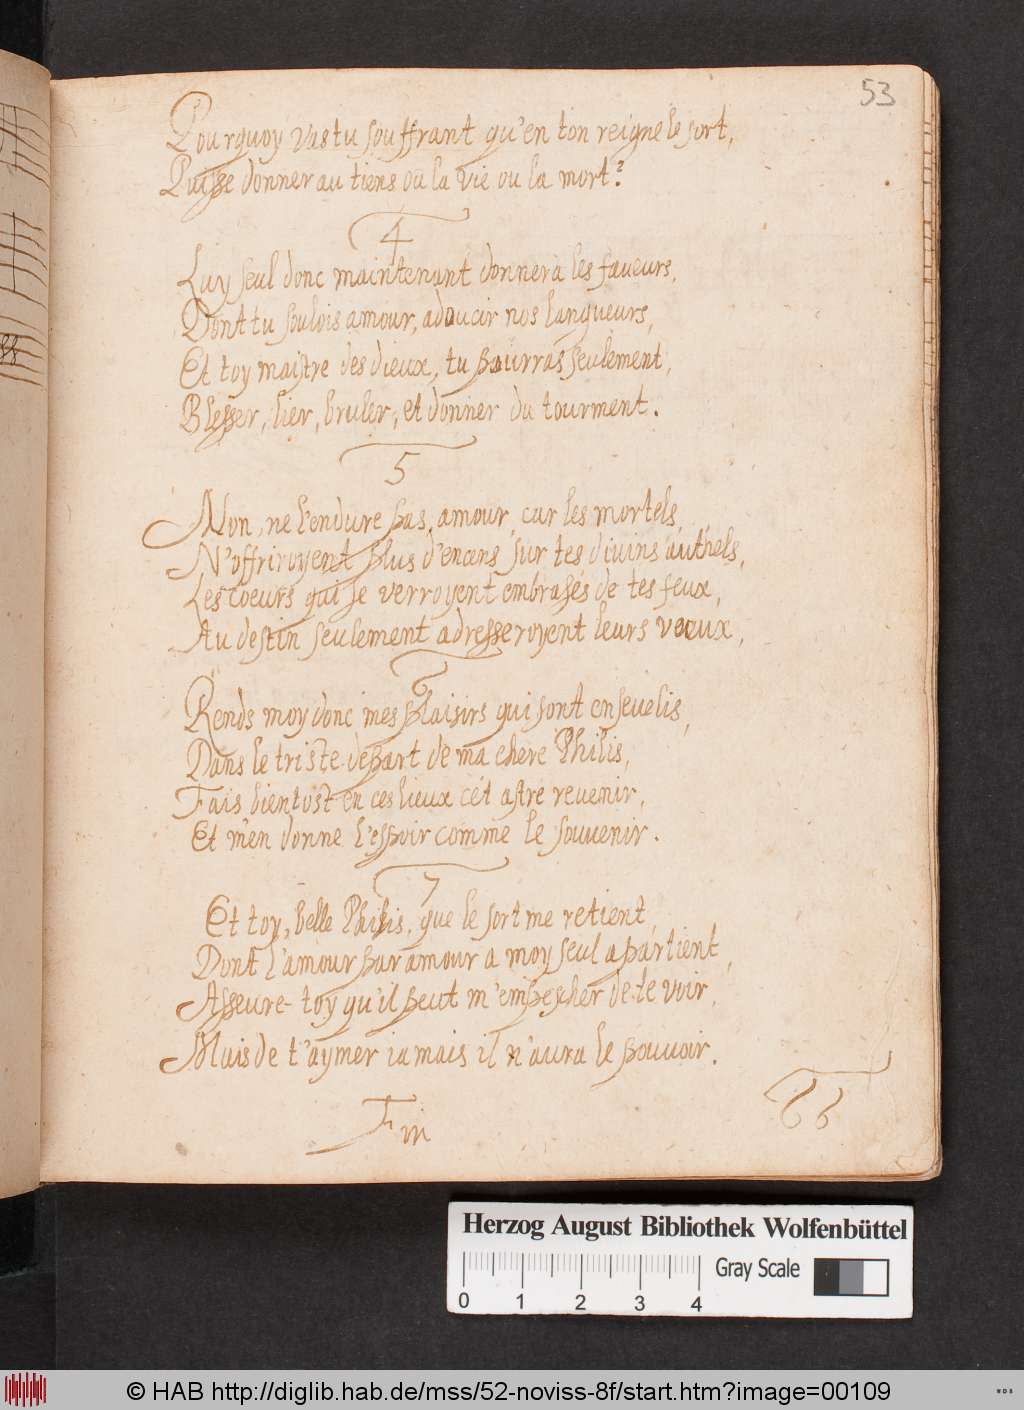 53
Pourquoy vas tu souffrant qu'en ton reigne le sort,
Puisse donner au tiens ou la vie ou la mort?
4
Luy seul donc maintenant donnera les faueurs,
Dont tu soulois amour, adoucir nos langueurs,
Et toy maistre des dieux, tu pourras seulement,
Blesser, lier, bruler, et donner du tourment.
5
Non, ne l'endure pas, amour, car les mortels,
N'offriroyent plus d'encens sur tes divins authels,
Les coeurs qui se verroyent embrasés de tes feux,
Au destin seulement adresseroyent leurs voeux,
6
Rends moy donc mes plaisirs qui sont enseuelis,
Dans le triste depart de ma chere Philis,
Fais bientost en ces lieux cét astre reuenir,
Et m'en donne l'espoir comme le souuenir.
7
Et toy, belle Philis, que le sort me retient,
Dont l'amour par amour a moy seul apartient,
Asseure-toy qu'il peut m'empescher de te voir,
Mais de t'aymer iamais il n'aura le pouuoir.
Fin
Herzog August Bibliothek Wolfenbüttel
Gray Scale
0 1 2 3 4
© HAB http://diglib.hab.de/mss/52-noviss-8f/start.htm?image=00109